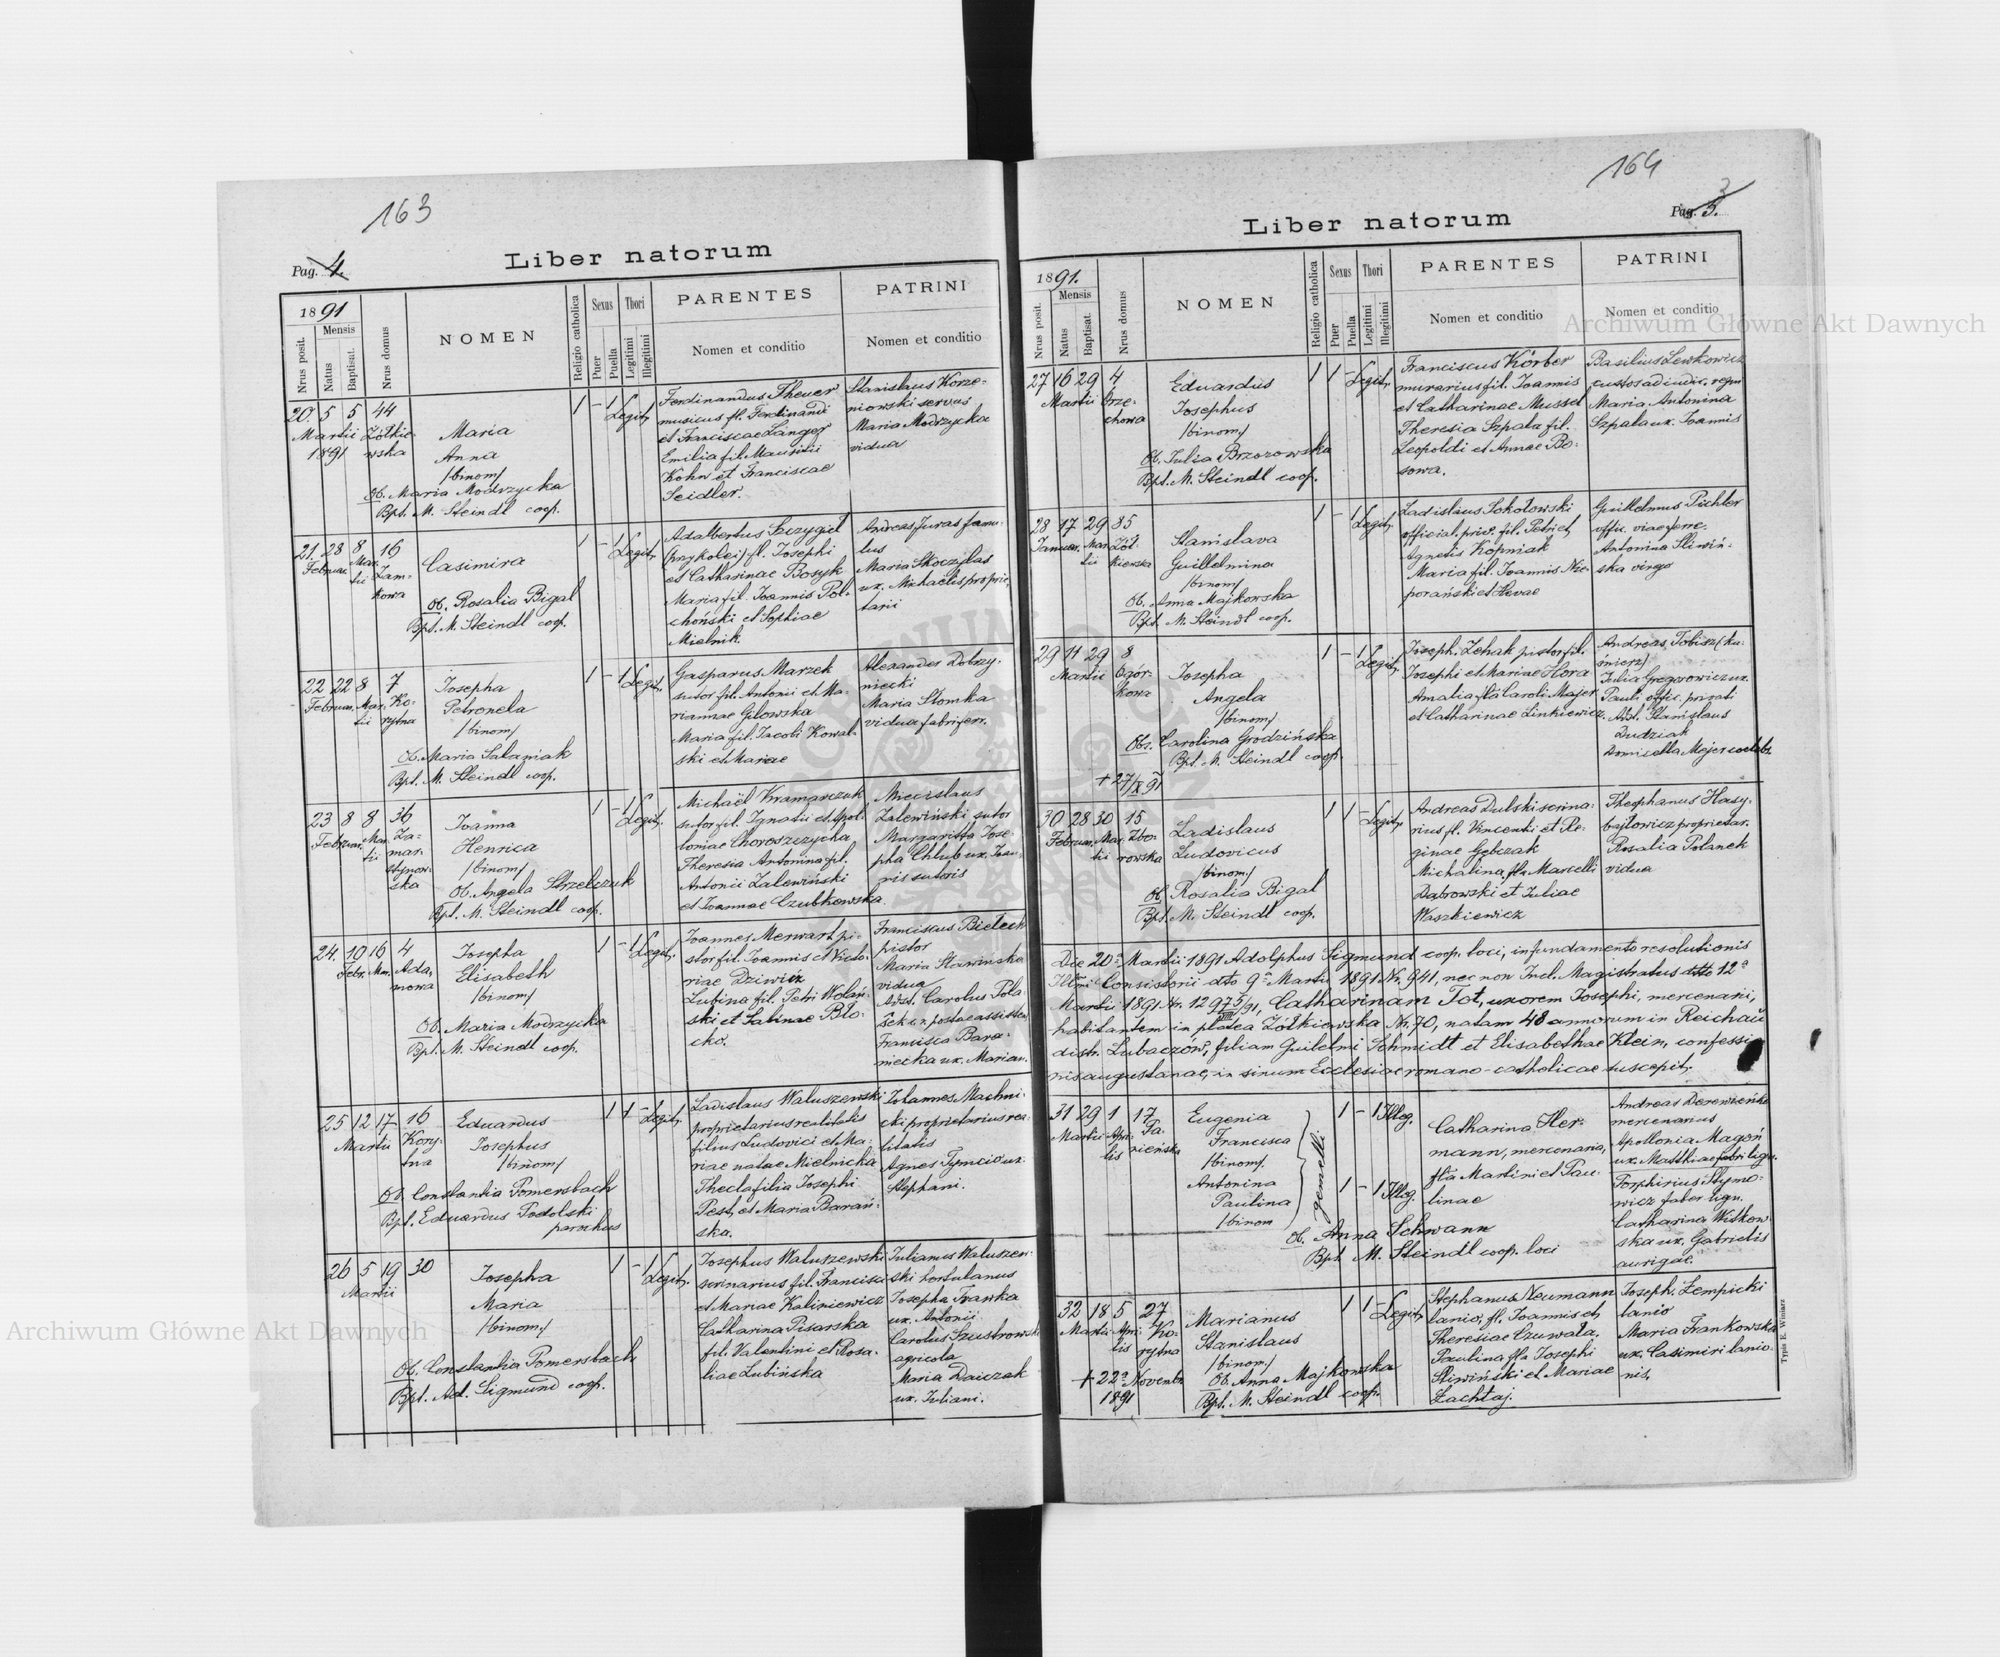 163
Pag. 4.
Liber natorum
1891
Mensis
Nrus posit.
Natus
Baptisat.
Nrus domus
NOMEN
Religio catholica
Sexus
Puer
Puella
Thori
Legitimi
Illegitimi
PARENTES
Nomen et conditio
PATRINI
Nomen et conditio
20 5 5 44
Martii Żółkie-
1891 wska
Maria
Anna
/binom/
Ob. Maria Modrzycka
Bpt. M. Steindl coop.
1 - 1 Legit.
Ferdinandus Theuer
musicus fl. Ferdinandi
et Franciscae Langer
Emilia fil. Mauritii
Kohn et Franciscae
Seidler.
Stanislaus Korze-
niowski servus
Maria Modrzycka
vidua
21. 28 8 16
Februar. Mar- Zam-
tii kowa
Casimira
Ob. Rosalia Bigal
Bpt. M. Steindl coop.
1 - 1 Legit.
Adalbertus Szczygiel
(przy kolei) fl. Josephi
et Catharinae Bosyk
Maria fil. Joannis Pol-
choński et Sophiae
Mielnik.
Andreas Juras famu-
lus
Maria Skoczylas
ux. Michaelis proprie-
tarii
22 22 8 7
Februar. Mar- Ko-
tii rytna
Josepha
Petronela
/binom/
Ob. Maria Sałaniak
Bpt. M. Steindl coop.
1 - 1 Legit.
Gasparus Marzek
sutor fil. Antonii et Ma-
riannae Gilowska
Maria fil. Jacobi Kowal-
ski et Mariae
Alexander Dobrzy-
niecki
Maria Słomka
vidua fabri ferr.
23 8 8 36
Februar. Mar- Za-
tii mar-
stynow-
ska
Joanna
Henrica
/binom/
Ob. Angela Strzelczuk
Bpt. M. Steindl coop.
1 - 1 Legit.
Michaël Kramarczuk
sutor fil. Ignatii et Apol-
loniae Choroszczycha
Theresia Antonina fil.
Antonii Zalewiński
et Joannae Czubkowska
Miecislaus
Zalewiński sutor
Margaritta Jose-
pha Chlub ux. Joan-
nis sutoris
24. 10 16 4
Febr. Mar. Ada-
mowa
Josepha
Elisabeth
/binom/
Ob. Maria Modrzycka
Bpt. M. Steindl coop.
1 - 1 Legit.
Joannes Merwart pi-
stor fil. Joannis et Victo-
riae Dziwik
Lubina fil. Petri Wolań-
ski et Sabinae Blo-
cho.
Franciscus Bieleck
pistor
Maria Sławińska
vidua
Adst. Carolus Pola-
šek c. r. postae assistens
Francisca Bara-
niecka ux. Marian.
25 12 17 16
Martii Kory-
tna
Eduardus
Josephus
/binom/
Ob. Constantia Pomersbach
Bpt. Eduardus Podolski
parochus
1 1 - Legit.
Ladislaus Waluszewski
proprietarius realitatis
filius Ludovici et Ma-
riae natae Mielnicka
Thecla filia Josephi
Pest, et Maria Barań-
ska.
Johannes Machni-
cki proprietarius rea-
litatis
Agnes Tymciow ux.
Stephani.
26 5 19 30
Martii
Josepha
Maria
/binom/
Ob. Constantia Pomersbach
Bpt. Ad. Sigmund coop.
1 - 1 Legit.
Josephus Waluszewski
scrinarius fil. Francisci
et Mariae Kaliniewicz
Catharina Pisarska
fil. Valentini et Rosa-
liae Lubińska
Julianus Waluszew-
ski hortulanus
Josepha Frawka
ux. Antonii
Carolus Szustrowski
agricola
Maria Daiczak
ux. Juliani.
164
Pag. 5. 3
Liber natorum
1891.
Mensis
Nrus posit.
Natus
Baptisat.
Nrus domus
NOMEN
Religio catholica
Sexus
Puer
Puella
Thori
Legitimi
Illegitimi
PARENTES
Nomen et conditio
PATRINI
Nomen et conditio
27 16 29 4
Martii Orze-
chowa
Eduardus
Josephus
/binom/
Ob. Julia Brzozowska
Bpt. M. Steindl coop.
1 1 - Legit.
Franciscus Körber
murarius fil. Joannis
et Catharinae Mussel
Theresia Szpala fil.
Leopoldi et Annae Bo-
sowa.
Basilius Lewkowicz
custos ad iudic. regni
Maria Antonina
Szpala ux. Joannis
28 17 29 85
Januar. Mar- Żół-
tii kiewska
Stanislava
Guillelmina
/binom/
Ob. Anna Majkowska
Bpt. M. Steindl coop.
1 - 1 Legit.
Ladislaus Sokołowski
official. priv. fil. Petri et
Agnetis Kopniak
Maria fil. Joannis Nie-
porański et Hevae
Guillelmus Pichler
offic. viae ferre.
Antonina Sliwiń-
ska virgo
29 11 29 8
Martii Ogór-
kowa
Josepha
Angela
/binom/
Obs. Carolina Grodzińska
Bpt. M. Steindl coop.
+ 27/IX 91
1 - 1 Legit.
Joseph. Zehak pistor fil.
Josephi et Mariae Hora
Amalia fla Caroli Majer
et Catharinae Linkiewicz.
Andreas Tobisz (ku-
śnierz)
Julia Gregorowicz ux.
Pauli offic. privati
Adst. Stanislaus
Dudziak
Domicella Mejer coelebs
30 28 30 15
Februar. Mar- Zbo-
tii rowska
Ladislaus
Ludovicus
/binom/
Ob. Rosalia Bigal
Bpt. M. Steindl coop.
1 1 - Legit.
Andreas Dulski scrina-
rius fl. Vincentii et Re-
ginae Gębczak
Michalina fla Marcelli
Dąbrowski et Juliae
Waszkiewicz
Theophanus Hasy-
bajłowicz proprietar.
Rosalia Polanek
vidua
Die 20a Martii 1891 Adolphus Sigmund coop. loci, in fundamento resolutionis
Illmi Consistorii dto 9a Martii 1891 Nr. 941, nec non Incl. Magistratus dtto 12a
Martii 1891 Nr. 12975/VIII/91, Catharinam Tot, uxorem Josephi, mercenarii,
habitantem in platea Żółkiewska Nr. 70, natam 48 annorum in Reichau
distr. Lubaczów, filiam Guilelmi Schmidt et Elisabethae Klein, confessio-
nis augustanae, in sinum Ecclesiae romano-catholicae suscepit.
31 29 1 17
Martii Apri- Pa-
lis nieńska
Eugenia
Francisca
/binom/
Antonina
Paulina
/binom
gemelli
Ob. Anna Schwann
Bpt. M. Steindl coop. loci
1 - 1 Illeg.
1 - 1 Illeg.
Catharina Her-
mann, mercenaria,
fla Martini et Pau-
linae
Andreas Derewieńko
mercenarius
Apollonia Magoń
ux. Matthiae fabri lign.
Porphirius Stymo-
wicz faber lign.
Catharina Witkow-
ska ux. Gabrielis
aurigae.
32 18 5 27
Martii Apri- Ko-
lis rytna
Marianus
Stanislaus
/binom/
Ob. Anna Majkowska
Bpt. M. Steindl coop.
+ 22a Novembr
1891
1 1 - Legit.
Stephanus Neumann
lanio, fl. Joannis et
Theresiae Czuwała.
Paulina fla Josephi
Sliwiński et Mariae
Zachtaj.
Joseph. Łempicki
lanio
Maria Frankowska
ux. Casimiri lanio-
nis.
Typis E. Winiarz
Archiwum Główne Akt Dawnych
Archiwum Główne Akt Dawnych